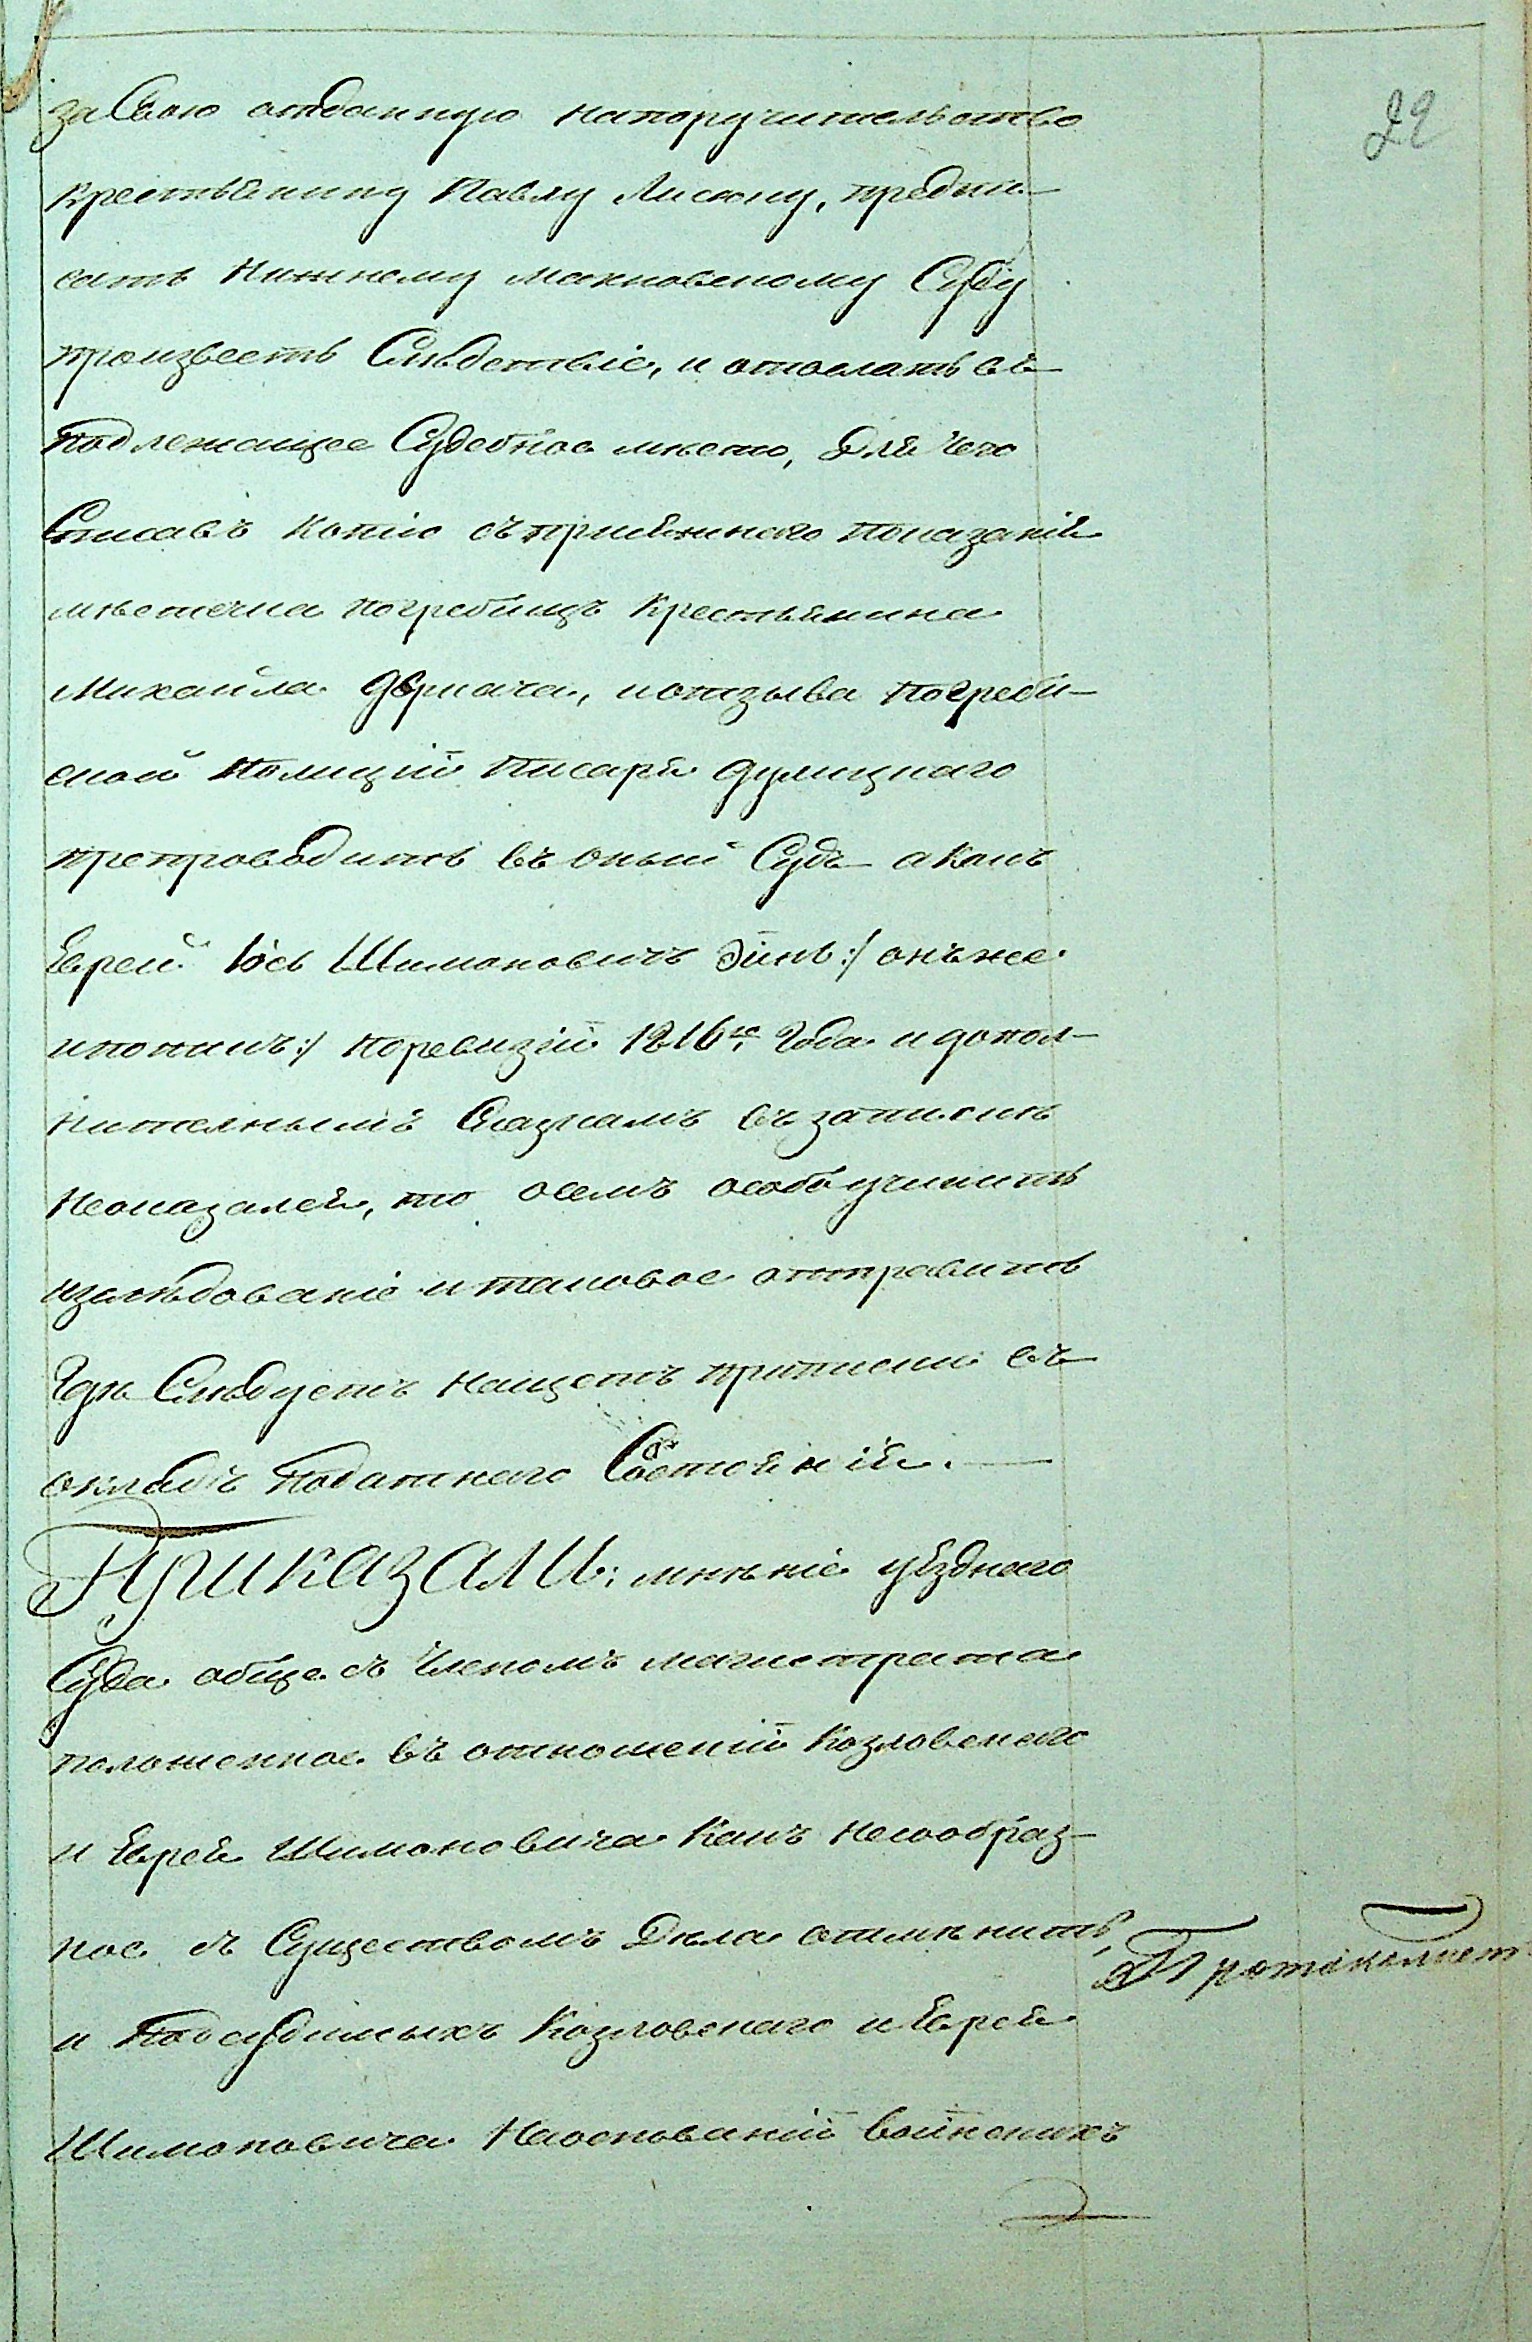 29
за Свою отданную напоручительство
крестьянину Павлу Лисюну, предпи-
сать Нижнему махновскому Суду
произвесть Слѣдствіе, и отослать въ
подлежащее Судебное мѣсто, Для чего
Списавъ копію съ присяжнаго показанія
мѣстечка погребищъ крестьянина
Михаила Деркача, иотзыва погреби-
ской полиціи писаря Дулицкаго
препроводить въ оный Судъ а какъ
Еврей Іось Шимоновичъ :/ онъже
:/ поревизіи 1816го Года и допол-
нителнымъ Сказкамъ въ запискѣ
Неоказался, то осемъ особо учинить
изслѣдованіе итаковое отправить
Гдѣ Слѣдуетъ нащетъ приписки въ
окладъ податнаго Состоянія.
Приказали: мнѣніе уѣзднаго
Суда обще съ Членомъ магистрата
положенное въ отношеніи Козловскаго
и Еврея Шимоновича какъ несообраз-
ное съ Существомъ Дѣла отмѣнить,
и подсудимыхъ Козловскаго и Еврея
Шимоновича Наоснованіи воинскихъ
Протоколист